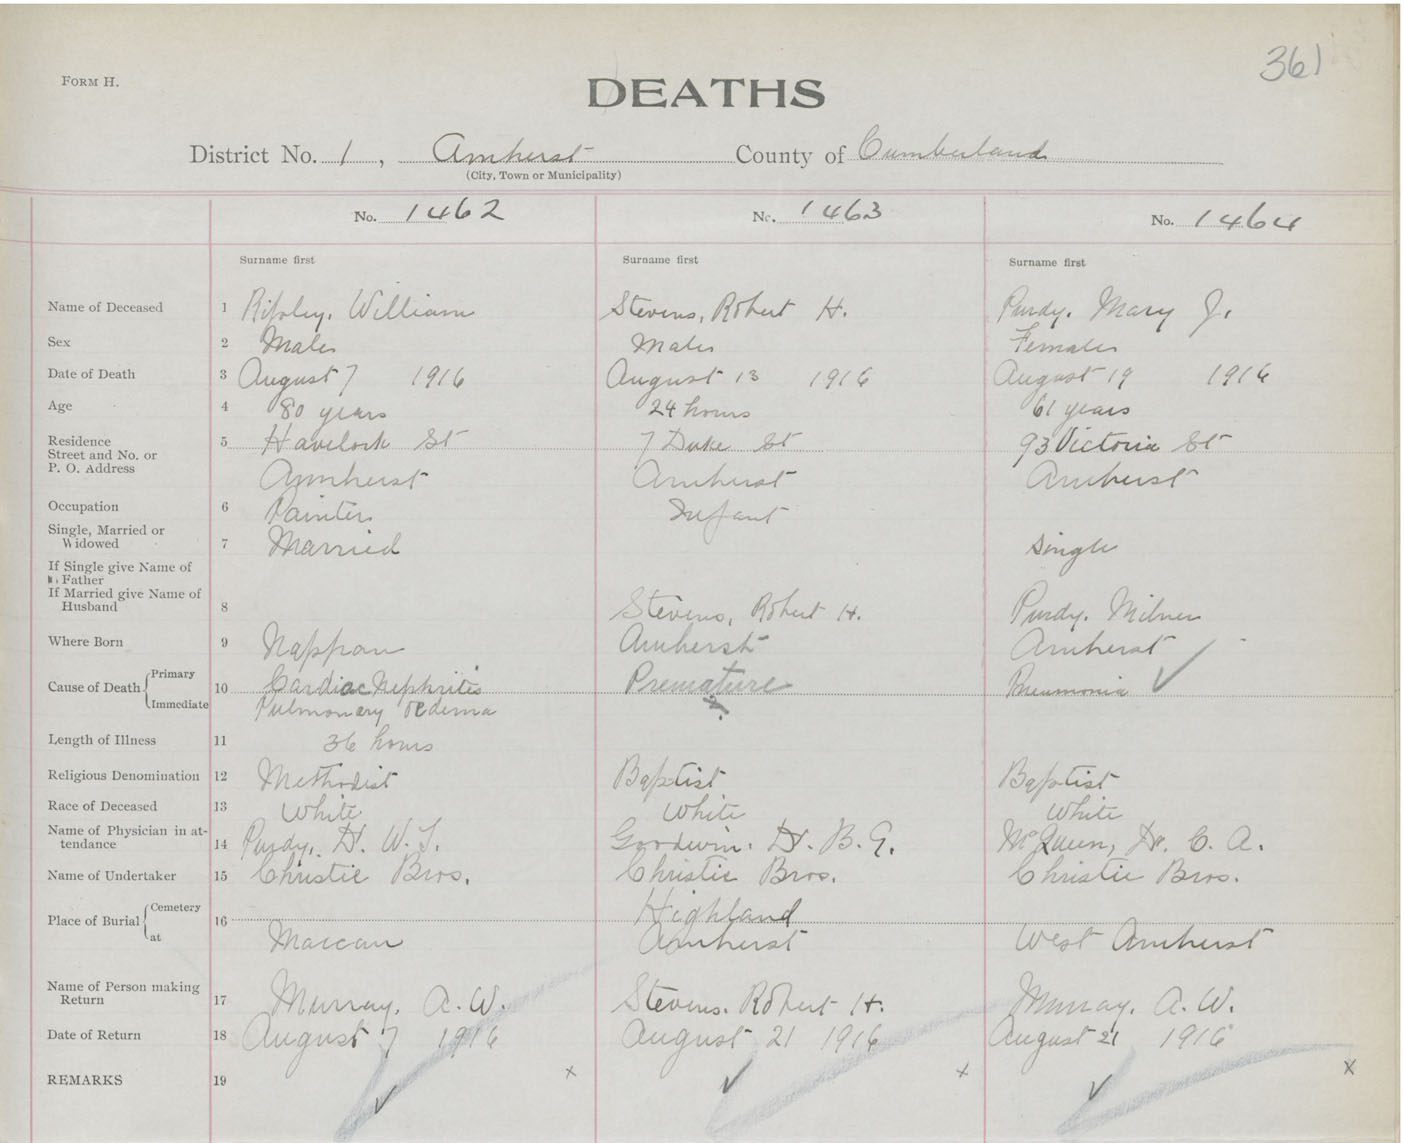 361
FORM H.
DEATHS
District No. 1, Amherst County of Cumberland
(City, Town or Municipality)
No. 1462 No. 1463 No. 1464
Surname first Surname first Surname first
Name of Deceased 1 Ripley, William Stevens, Robert H. Purdy, Mary J.
Sex 2 Male Male Female
Date of Death 3 August 7 1916 August 13 1916 August 19 1916
Age 4 80 years 24 hours 61 years
Residence 5 Havelock St 7 Duke St 93 Victoria St
Street and No. or
P. O. Address Amherst Amherst Amherst
Occupation 6 Painter Infant
Single, Married or
Widowed 7 Married Single
If Single give Name of
Father
If Married give Name of
Husband 8 Stevens, Robert H. Purdy, Milner
Where Born 9 Nappan Amherst Amherst
Cause of Death Primary 10 Cardiac Nephritis Premature Pneumonia
Immediate Pulmonary oedema
Length of Illness 11 36 hours
Religious Denomination 12 Methodist Baptist Baptist
Race of Deceased 13 White White White
Name of Physician in at-
tendance 14 Purdy, Dr. W. T. Goodwin, Dr. B. E. McQueen, Dr. C. A.
Name of Undertaker 15 Christie Bros. Christie Bros. Christie Bros.
Place of Burial Cemetery 16 Highland
at Maccan Amherst West Amherst
Name of Person making
Return 17 Murray, A. W. Stevens, Robert H. Murray, A. W.
Date of Return 18 August 7 1916 August 21 1916 August 21 1916
REMARKS 19 x x x